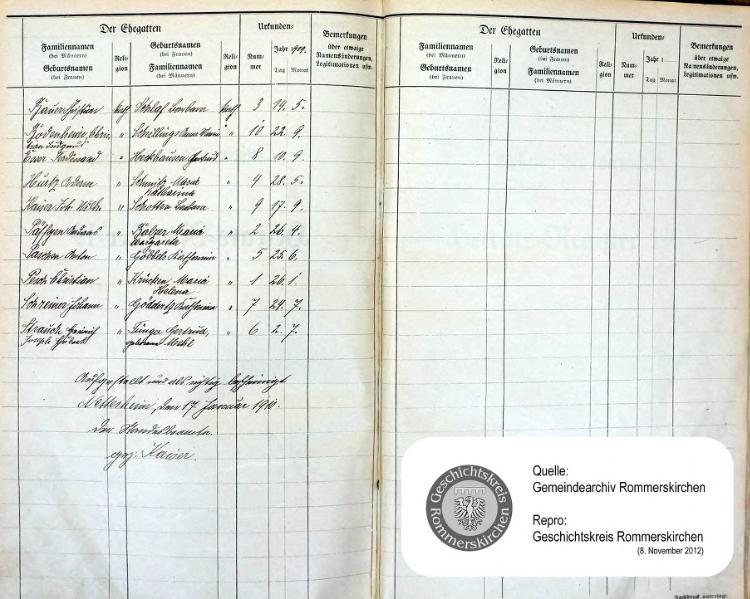 Der Ehegatten
Familiennamen
(bei Männern)
Geburtsnamen
(bei Frauen)
Reli-
gion
Geburtsnamen
(bei Frauen)
Familiennamen
(bei Männern)
Reli-
gion
Urkunden-
Num-
mer
Jahr 1909.
Tag Monat
Bemerkungen
über etwaige
Namensänderungen,
Legitimationen usw.
kath. Schlaf Barbara kath. 3 14. 5.
" Schillings Anna Maria " 10 22. 9.
Esser Ferdinand " " 8 10. 9.
Hurtz Adam " Schmitz Maria " 4 28. 5.
Katharina
Kaiser Joh. " Schotten Barbara " 9 17. 9.
Päffgen " Maria " 2 26. 4.
Margareta
Anton " Göbbels Katharina " 5 25. 6.
Pesch Christian " Krücken Maria " 1 26. 1.
Helena
Schreiner Johann " Göddertz Katharina " 7 24. 7.
Strauch Heinrich " Gertrud, " 6 2. 7.
Joseph Hubert
Aufgestellt und als richtig bescheinigt
Nettesheim, den 17. Januar 1910.
Der Standesbeamte.
gez: Kaiser.
Der Ehegatten
Familiennamen
(bei Männern)
Geburtsnamen
(bei Frauen)
Reli-
gion
Geburtsnamen
(bei Frauen)
Familiennamen
(bei Männern)
Reli-
gion
Urkunden-
Num-
mer
Jahr
Tag Monat
Bemerkungen
über etwaige
Namensänderungen,
Legitimationen usw.
Geschichtskreis
Rommerskirchen
Quelle:
Gemeindearchiv Rommerskirchen
Repro:
Geschichtskreis Rommerskirchen
(8. November 2012)
Nachdruck untersagt.